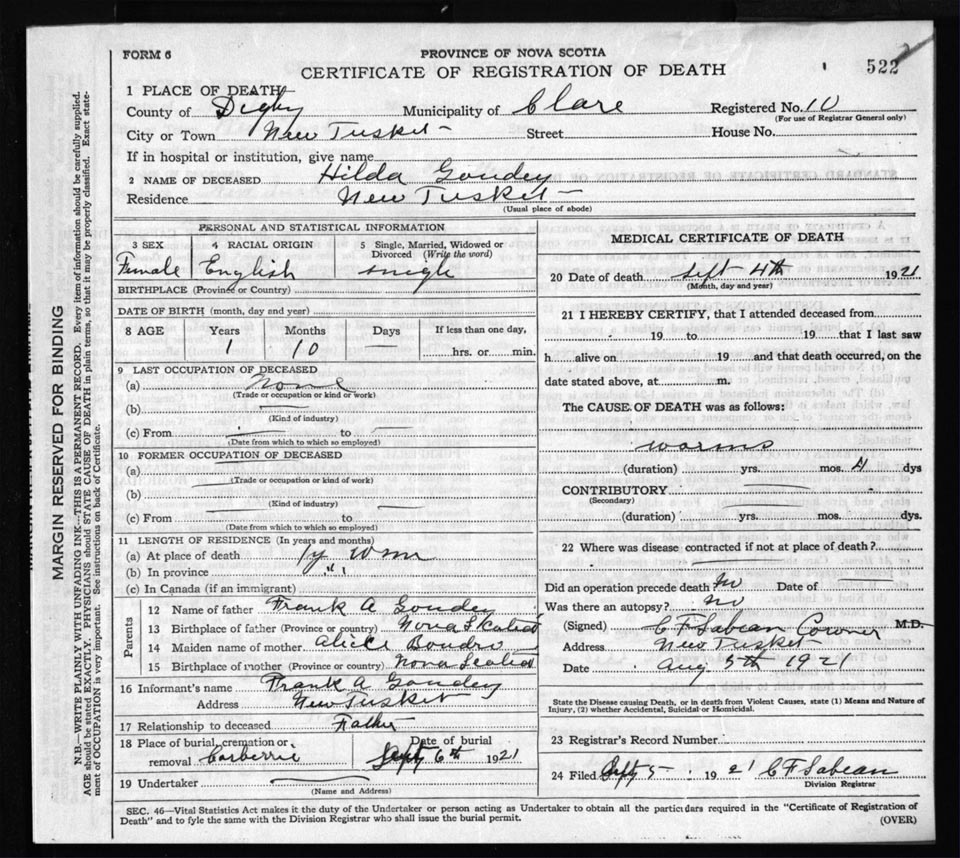 FORM 6
PROVINCE OF NOVA SCOTIA
CERTIFICATE OF REGISTRATION OF DEATH
522
1 PLACE OF DEATH—
County of Digby Municipality of Clare Registered No. 10
(For use of Registrar General only)
City or Town New Tusket Street House No.
If in hospital or institution, give name
2 NAME OF DECEASED Hilda Goudey
Residence New Tusket
(Usual place of abode)
PERSONAL AND STATISTICAL INFORMATION
3 SEX 4 RACIAL ORIGIN 5 Single, Married, Widowed or Divorced (Write the word)
Female English single
BIRTHPLACE (Province or Country)
DATE OF BIRTH (month, day and year)
8 AGE Years Months Days If less than one day,
1 10 — hrs. or min.
9 LAST OCCUPATION OF DECEASED
(a) None
(Trade or occupation or kind or work)
(b)
(Kind of industry)
(c) From to
(Date from which to which so employed)
10 FORMER OCCUPATION OF DECEASED
(a)
(Trade or occupation or kind or work)
(b)
(Kind of industry)
(c) From to
(Date from which to which so employed)
11 LENGTH OF RESIDENCE (In years and months)
(a) At place of death 1y
(b) In province " "
(c) In Canada (if an immigrant)
Parents
12 Name of father Frank A Goudey
13 Birthplace of father (Province or country) Nova Scotia
14 Maiden name of mother Alice Boudro
15 Birthplace of mother (Province or country) Nova Scotia
16 Informant's name Frank A Goudey
Address New Tusket
17 Relationship to deceased Father
18 Place of burial, cremation or removal Corberrie Date of burial Sept 6th 1921
19 Undertaker
(Name and Address)
MEDICAL CERTIFICATE OF DEATH
20 Date of death Sept 4th 1921
(Month, day and year)
21 I HEREBY CERTIFY, that I attended deceased from
19 to 19 that I last saw
h alive on 19 and that death occurred, on the
date stated above, at m.
The CAUSE OF DEATH was as follows:
worms
(duration) yrs. mos. 4 dys
CONTRIBUTORY
(Secondary)
(duration) yrs. mos. dys.
22 Where was disease contracted if not at place of death?
Did an operation precede death No Date of
Was there an autopsy? No
(Signed) C F Sabean Coroner M.D.
Address New Tusket
Date Aug 5th 1921
State the Disease causing Death, or in death from Violent Causes, state (1) Means and Nature of
Injury, (2) whether Accidental, Suicidal or Homicidal.
23 Registrar's Record Number
24 Filed Sept 5 1921 C F Sabean
Division Registrar
SEC. 46—Vital Statistics Act makes it the duty of the Undertaker or person acting as Undertaker to obtain all the particulars required in the "Certificate of Registration of
Death" and to fyle the same with the Division Registrar who shall issue the burial permit.
(OVER)
MARGIN RESERVED FOR BINDING
N.B.—WRITE PLAINLY WITH UNFADING INK—THIS IS A PERMANENT RECORD. Every item of information should be carefully supplied.
AGE should be stated EXACTLY. PHYSICIANS should STATE CAUSE OF DEATH in plain terms, so that it may be properly classified. Exact state-
ment of OCCUPATION is very important. See instructions on back of Certificate.